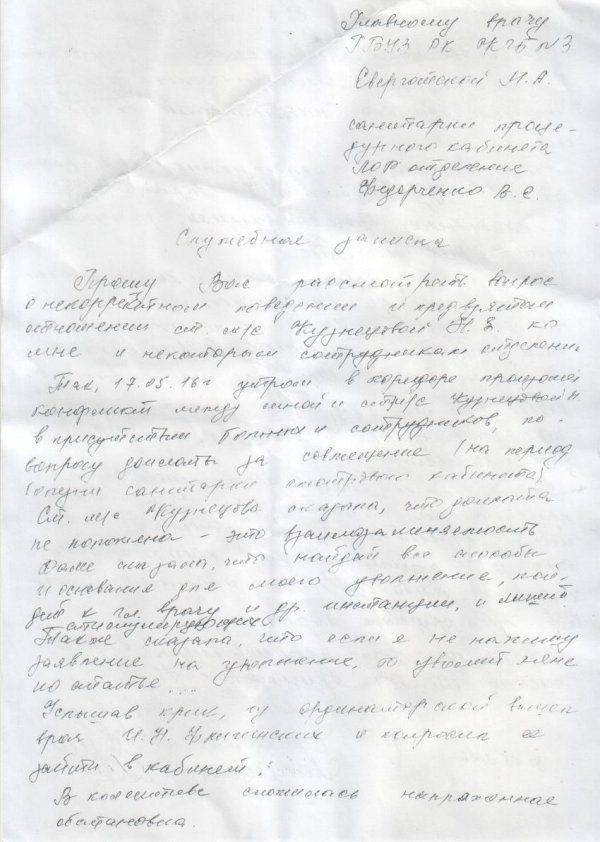 Главному врачу
ГБУЗ РК РКГБ №3
М.А.
санитарки проце-
дурного кабинета
ЛОР отделение
Федорченко В. С.
Служебная записка
Прошу Вас рассмотреть вопрос
о некорректном поведении и предвзятом
отношении ст. м/с Кузнецовой Н. В. ко
мне и некоторым сотрудникам отделения
Так, 17.05.16г утром в коридоре произошел
конфликт между мной и ст. м/с Кузнецовой Н
в присутствии больных и сотрудников, по
вопросу доплаты за совмещение (на период
болезни санитарки смотрового кабинета)
Ст. м/с Кузнецова сказала, что доплата
не положена - это взаимозаменяемость
Даже сказала, что найдет все способы
и основания для моего увольнение, пой-
дет к гл. врачу и др. инстанции, и лишит
стимулирующих
Также сказала, что если я не напишу
заявление на увольнение, то уволит меня
по статье....
Услышав крик, из ординаторской вышла
врач И.Н. и попросила ее
зайти в кабинет.
В коллективе сложилась напряженная
обстановка.